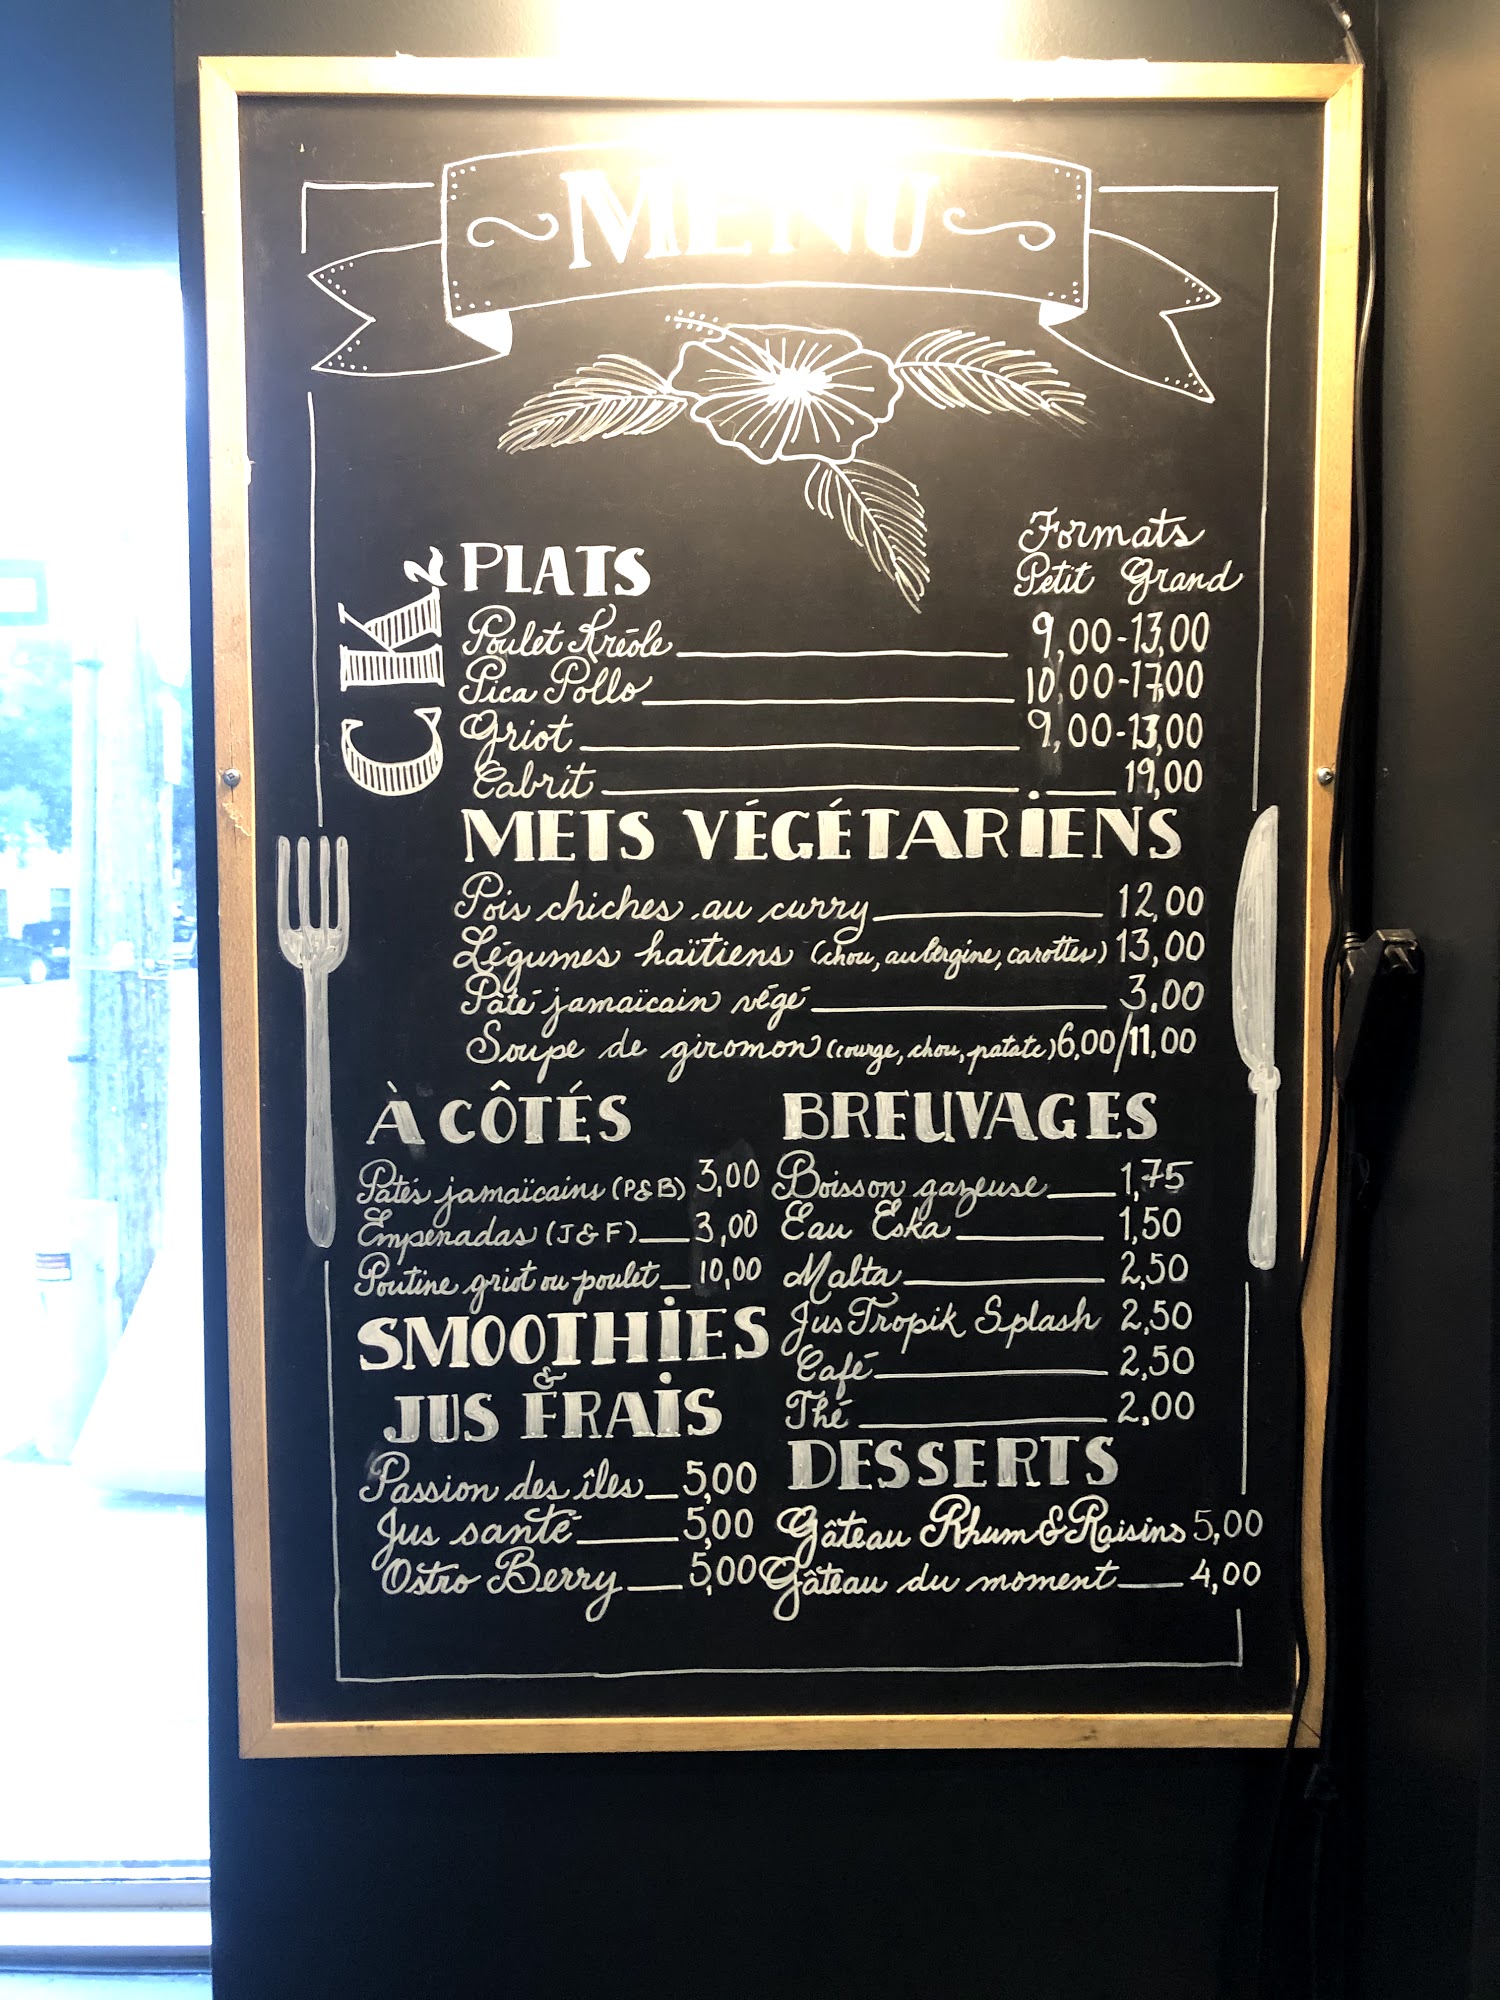 MENU
CK2
PLATS
Formats
Petit Grand
Poulet Kréole 9,00-13,00
Pica Pollo 10,00-17,00
Griot 9,00-13,00
Cabrit 19,00
METS VÉGÉTARIENS
Pois chiches au curry 12,00
Légumes haïtiens (chou, aubergine, carottes) 13,00
Pâté jamaïcain végé 3,00
Soupe de giromon (courge, chou, patate) 6,00/11,00
À CÔTÉS
Patés jamaïcains (P&B) 3,00
Empenadas (J&F) 3,00
Poutine griot ou poulet 10,00
SMOOTHIES
&
JUS FRAIS
Passion des îles 5,00
Jus santé 5,00
Ostro Berry 5,00
BREUVAGES
Boisson gazeuse 1,75
Eau Eska 1,50
Malta 2,50
Jus Tropik Splash 2,50
Café 2,50
Thé 2,00
DESSERTS
Gâteau Rhum & Raisins 5,00
Gâteau du moment 4,00